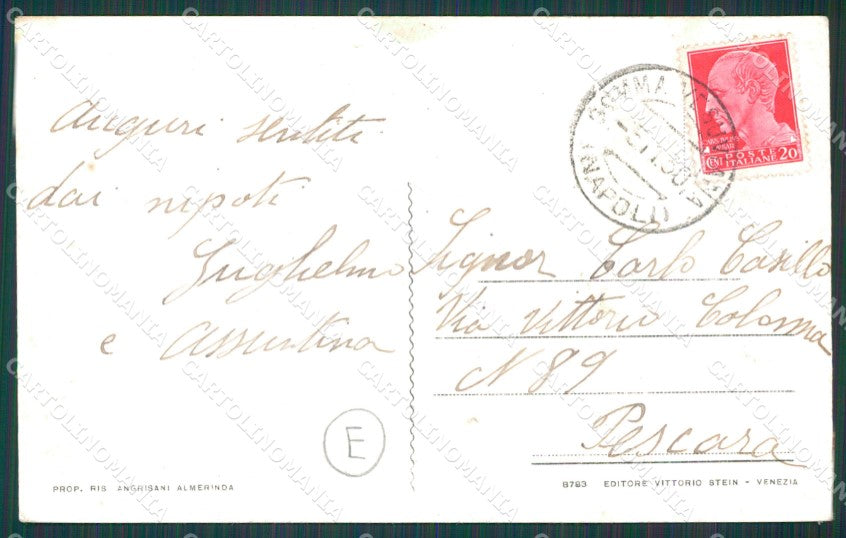 Auguri sentiti
dai nipoti
Guglielmo
e Assuntina
E
PROP. RIS. ANGRISANI ALMERINDA
SOMMA VESUVIANA
(NAPOLI)
CENT POSTE ITALIANE 20
Signor Carlo Casillo
Via Vittorio Colonna
N 89
Pescara
8783 EDITORE VITTORIO STEIN - VENEZIA
CARTOLINOMANIA